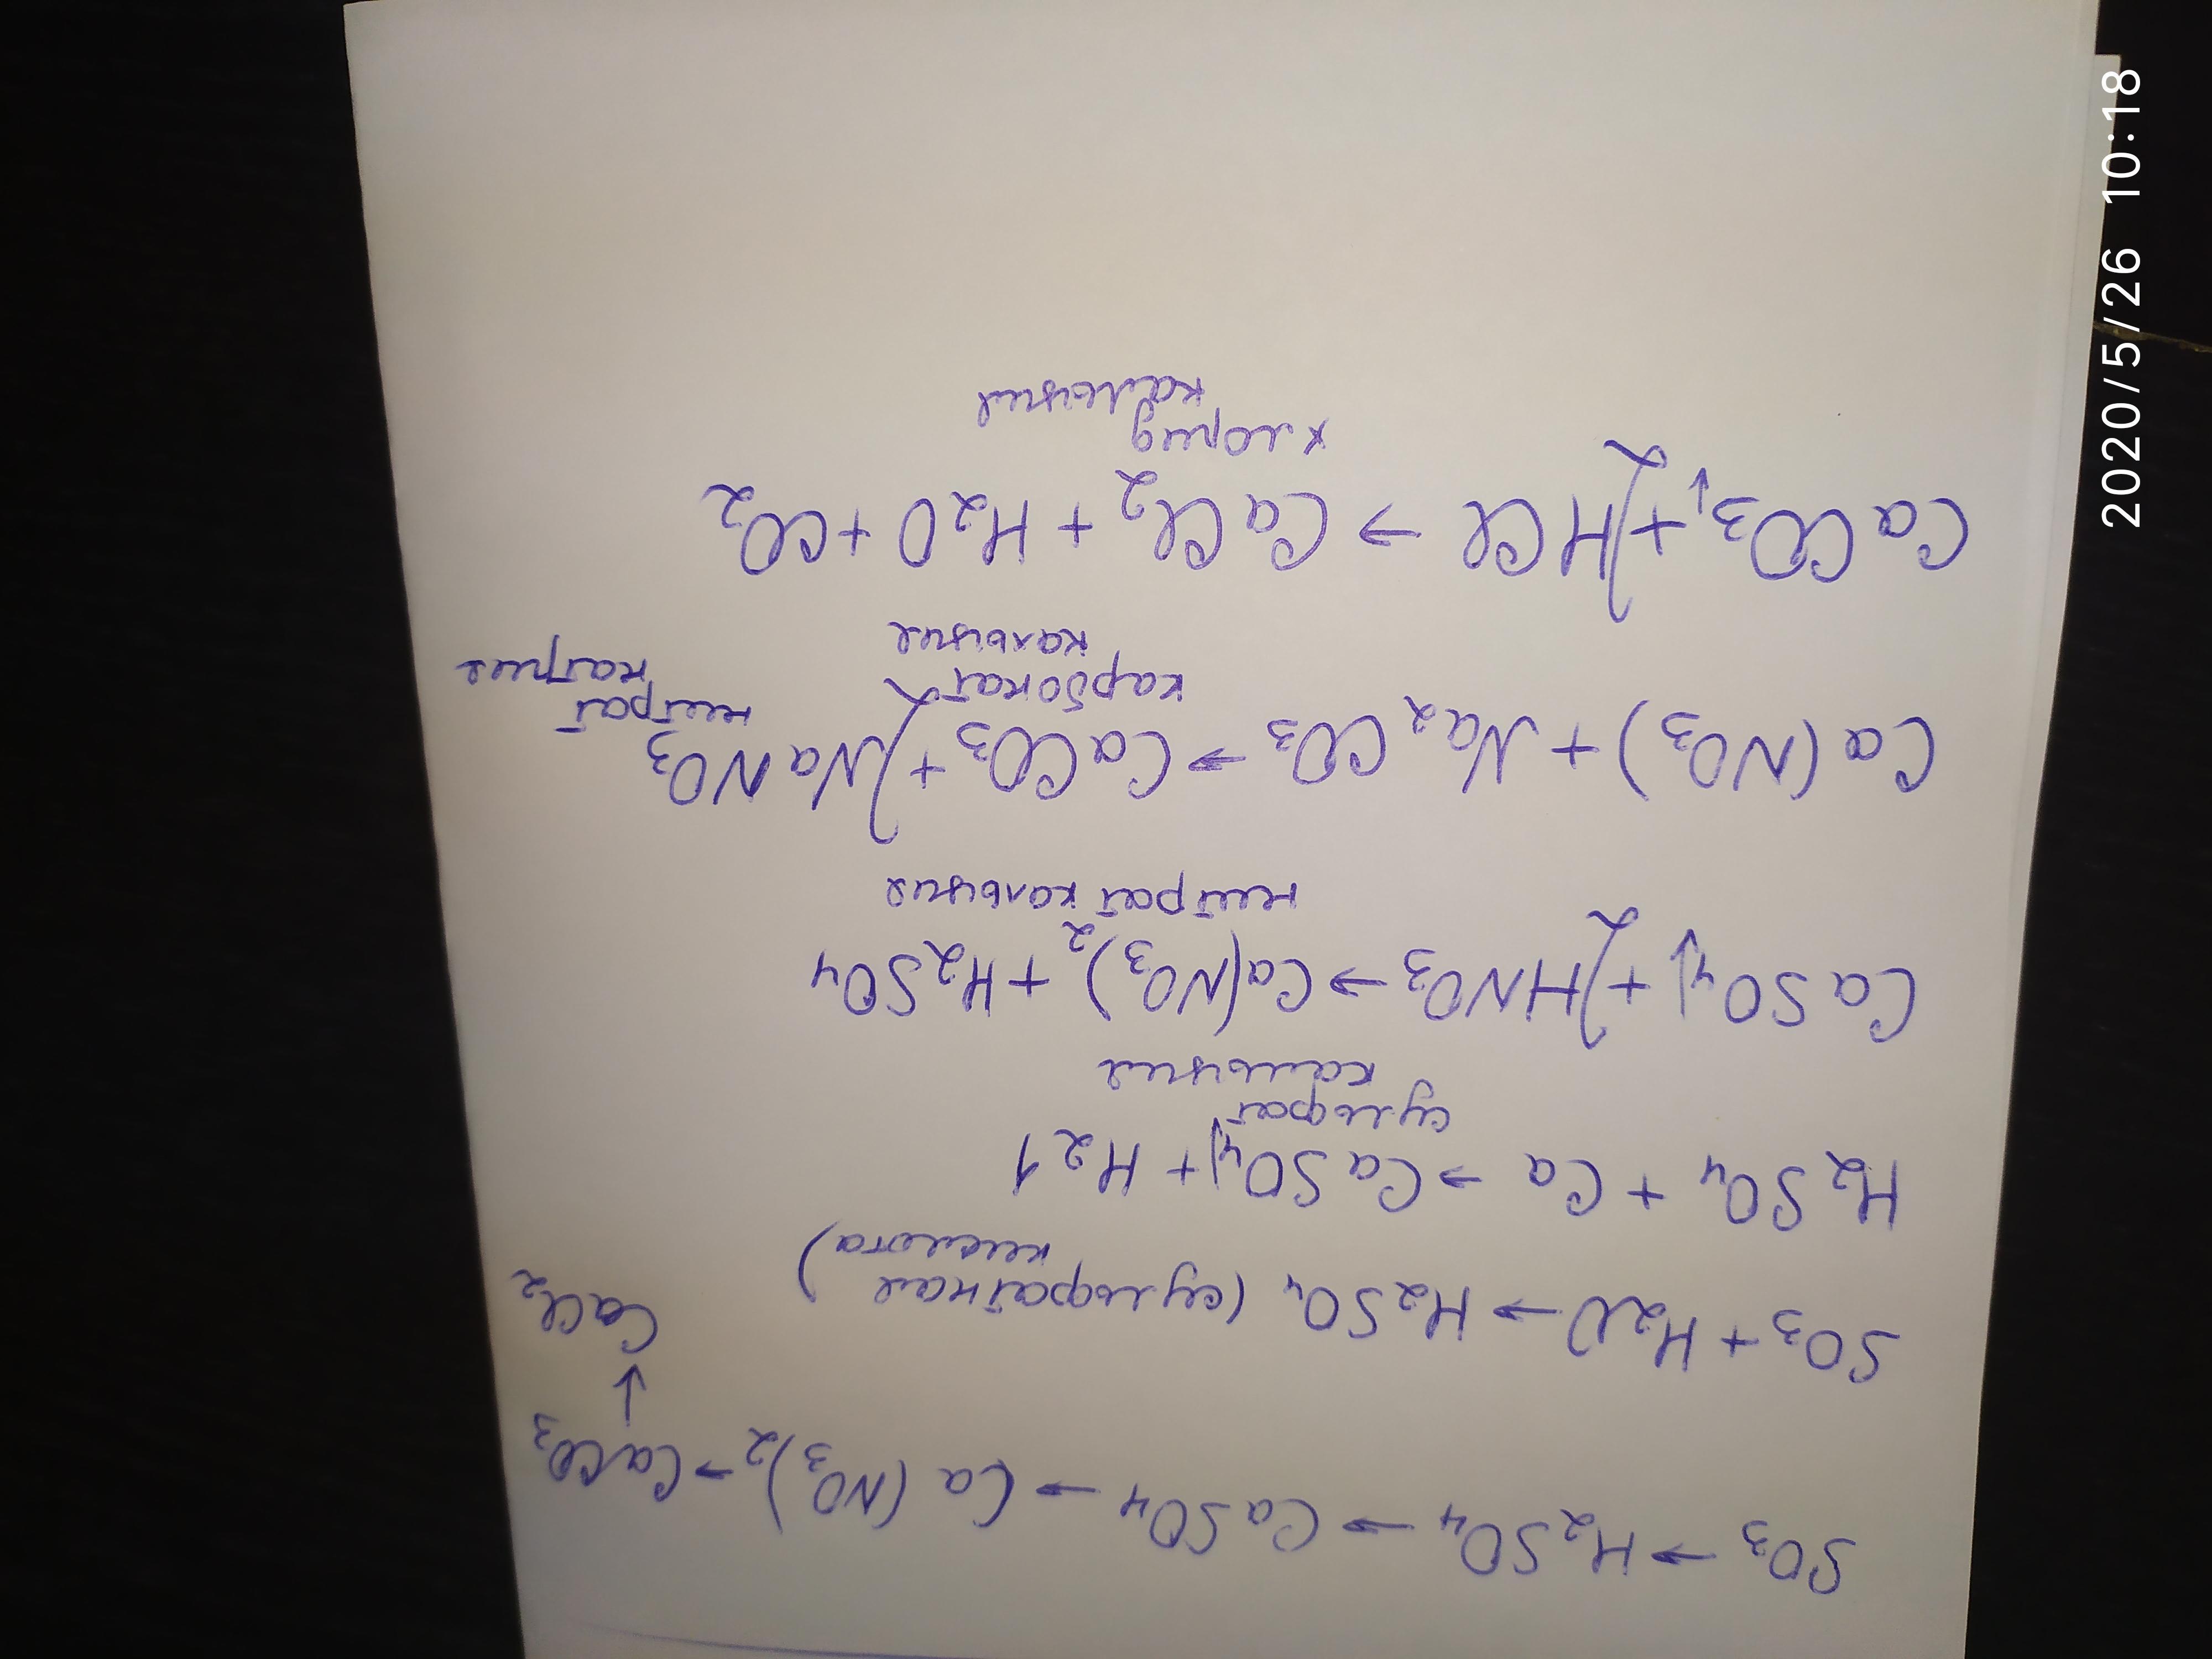 SO3 → H2SO4 → CaSO4 → Ca(NO3)2 → CaCO3
↓
CaCl2
SO3 + H2O → H2SO4 (сульфатная
кислота)
H2SO4 + Ca → CaSO4↓ + H2↑
сульфат
кальция
CaSO4↓ + 2HNO3 → Ca(NO3)2 + H2SO4
нитрат кальция
Ca(NO3) + Na2CO3 → CaCO3 + 2NaNO3
карбонат
кальция
нитрат
натрия
CaCO3↓ + 2HCl → CaCl2 + H2O + CO2
хлорид
кальция
2020/5/26 10:18